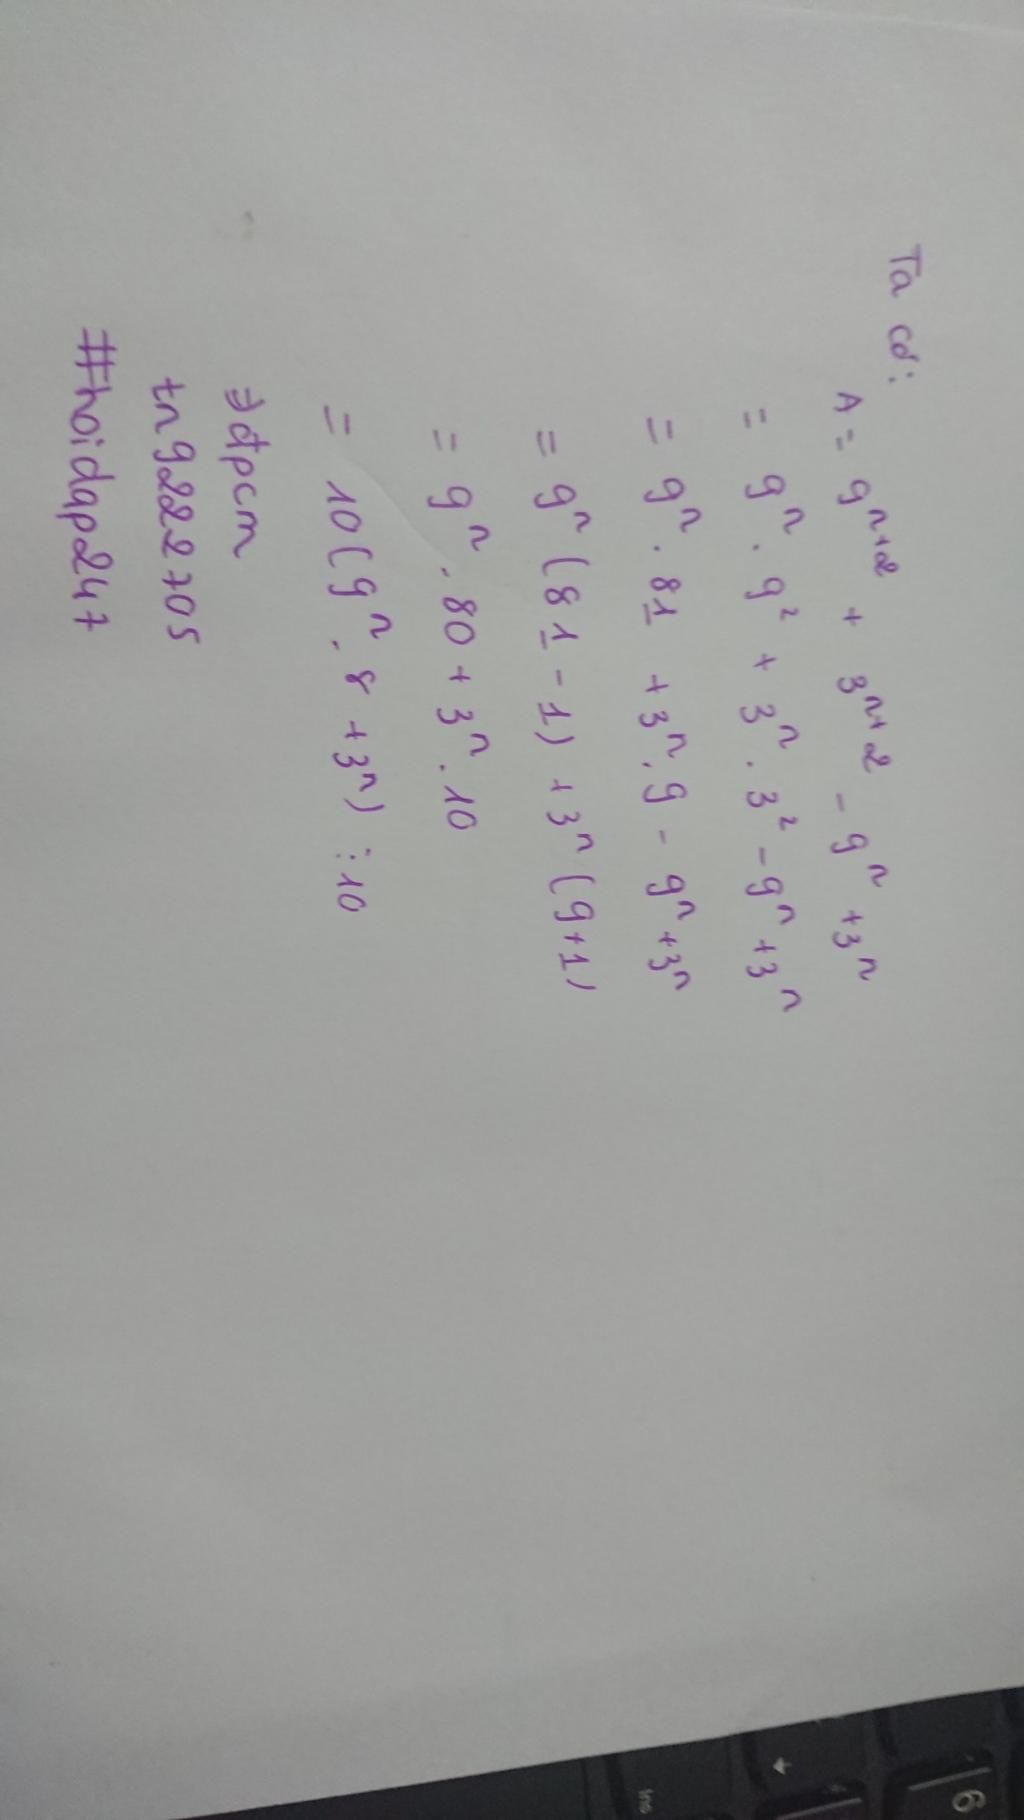 Ta có:
A = 9ⁿ⁺² + 3ⁿ⁺² - 9ⁿ + 3ⁿ
= 9ⁿ . 9² + 3ⁿ . 3² - 9ⁿ + 3ⁿ
= 9ⁿ . 81 + 3ⁿ . 9 - 9ⁿ + 3ⁿ
= 9ⁿ (81 - 1) + 3ⁿ (9 + 1)
= 9ⁿ . 80 + 3ⁿ . 10
= 10 (9ⁿ . 8 + 3ⁿ) ⋮ 10
⇒ đpcm
tng222705
#hoidap247
6
Ins